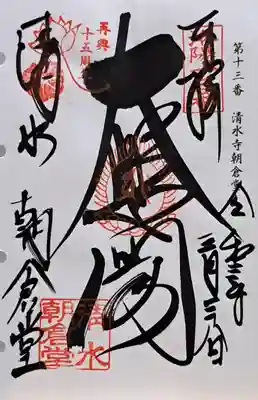 第十三番 清水寺朝倉堂
奉拝
大悲閣
清水
朝倉堂
再興
十五周年
清水
朝倉堂